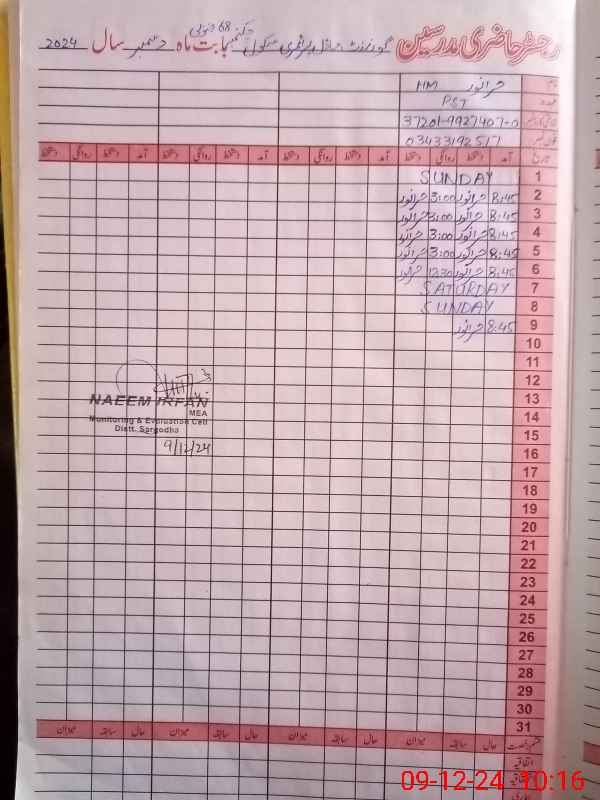 رجسٹر حاضری مدرسین گورنمنٹ ماڈل پرائمری سکول چکنمبر 68 جنوبی بابت ماہ دسمبر سال 2024
نام حرانور HM
عہدہ PST
37201-9927407-0
03433192517
تاریخ آمد دستخط روانگی دستخط آمد دستخط روانگی دستخط آمد دستخط روانگی دستخط آمد دستخط روانگی دستخط
1 SUNDAY
2 8:45 حرانور 3:00 حرانور
3 8:45 حرانور 3:00 حرانور
4 8:45 حرانور 3:00 حرانور
5 8:45 حرانور 3:00 حرانور
6 8:45 حرانور 12:30 حرانور
7 SATURDAY
8 SUNDAY
9 8:45 حرانور
10
11
12
13
14
15
16
17
18
19
20
21
22
23
24
25
26
27
28
29
30
31
NAEEM IRFAN
MEA
Monitoring & Evaluation Cell
Distt. Sargodha
9/12/24
قسم رخصت حال سابقہ میزان حال سابقہ میزان حال سابقہ میزان حال سابقہ میزان
اتفاقیہ
09-12-24 10:16